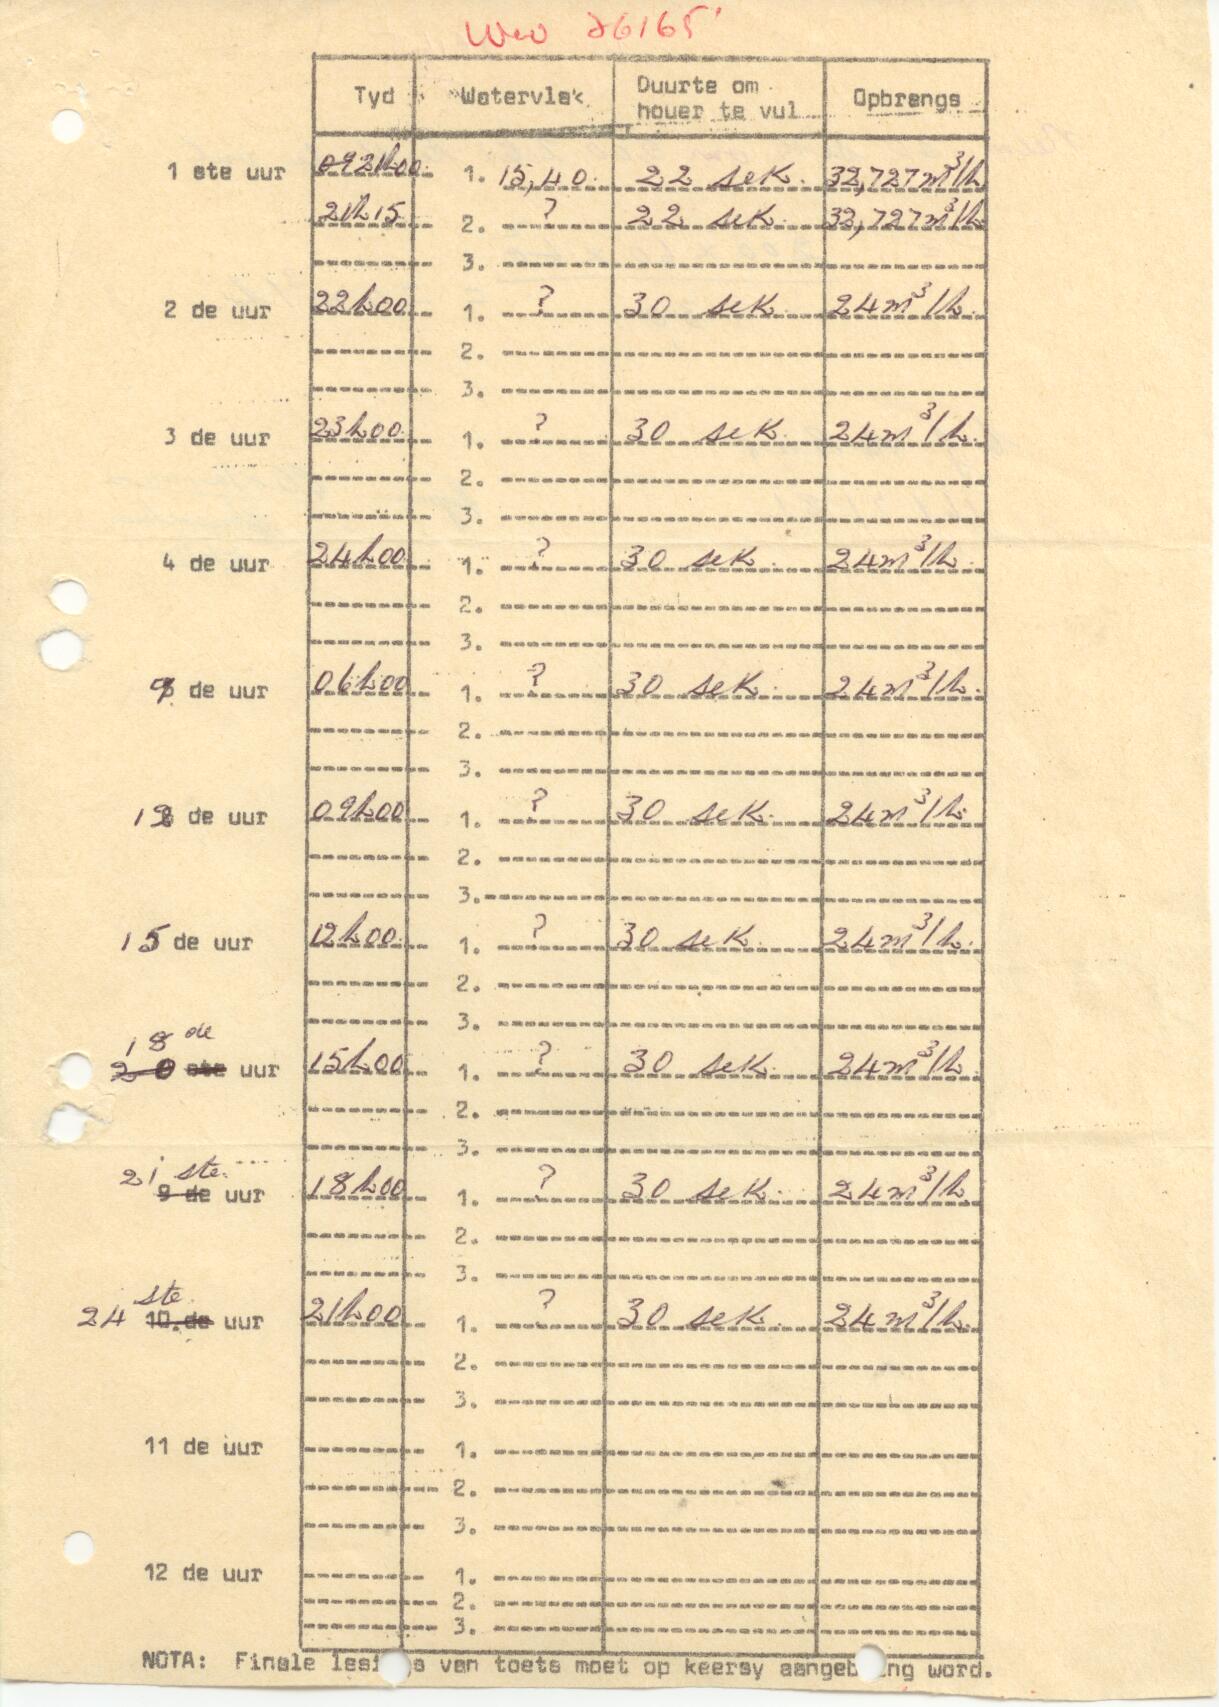 WW 26165
Tyd Watervlak Duurte om houer te vul Opbrengs
1 ste uur 0921h00 1. 15,40 22 sek. 32,727m³/h
21h15 2. ? 22 sek. 32,727m³/h
3.
2 de uur 22h00 1. ? 30 sek. 24m³/h.
2.
3.
3 de uur 23h00 1. ? 30 sek. 24m³/h.
2.
3.
4 de uur 24h00 1. ? 30 sek. 24m³/h.
2.
3.
de uur 06h00 1. ? 30 sek. 24m³/h.
2.
3.
12 de uur 09h00 1. ? 30 sek. 24m³/h.
2.
3.
15 de uur 12h00 1. ? 30 sek. 24m³/h.
2.
3.
18 de
20 ste uur 15h00 1. ? 30 sek. 24m³/h.
2.
3.
21 ste
9 de uur 18h00 1. ? 30 sek. 24m³/h.
2.
3.
24 ste
10 de uur 21h00 1. ? 30 sek. 24m³/h.
2.
3.
11 de uur 1.
2.
3.
12 de uur 1.
2.
3.
NOTA: Finale van toets moet op keersy word.